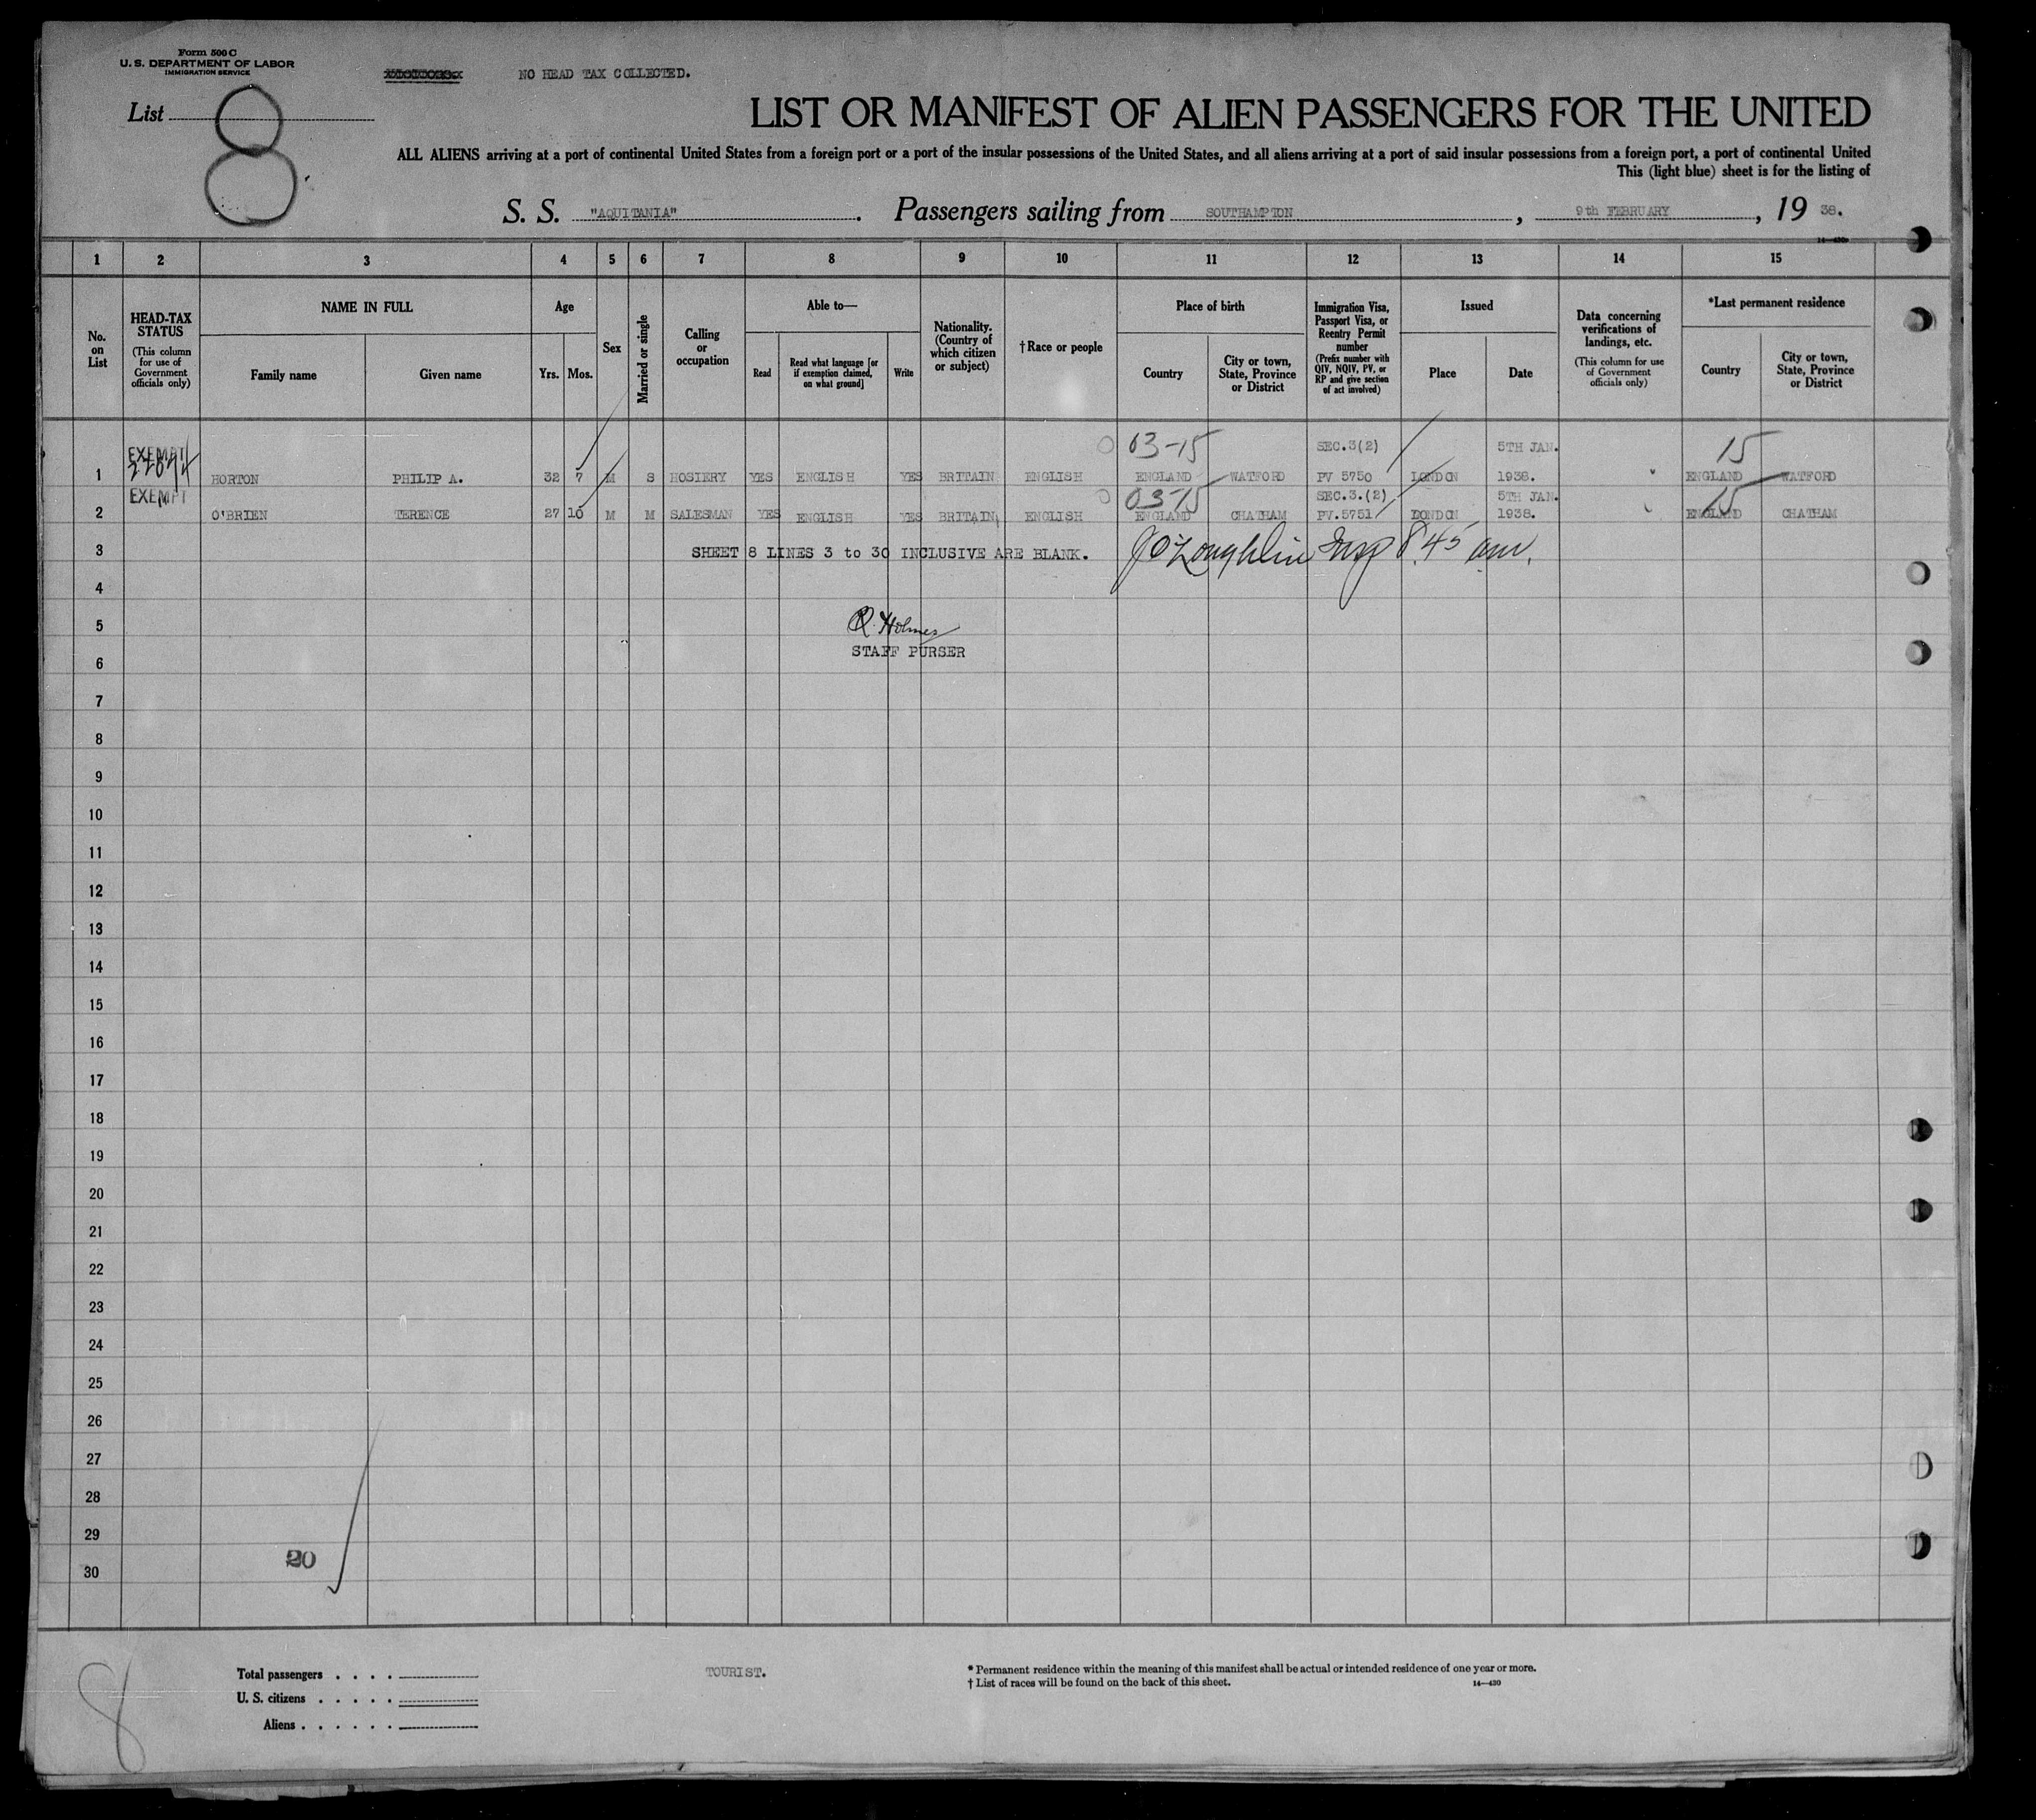 Form 500 C
U. S. DEPARTMENT OF LABOR
IMMIGRATION SERVICE
NO HEAD TAX COLLECTED.
List 8
LIST OR MANIFEST OF ALIEN PASSENGERS FOR THE UNITED
ALL ALIENS arriving at a port of continental United States from a foreign port or a port of the insular possessions of the United States, and all aliens arriving at a port of said insular possessions from a foreign port, a port of continental United
This (light blue) sheet is for the listing of
S. S. "AQUITANIA". Passengers sailing from SOUTHAMPTON, 9th FEBRUARY, 19 38.
14—430
1 2 3 4 5 6 7 8 9 10 11 12 13 14 15
No. on List
HEAD-TAX STATUS (This column for use of Government officials only)
NAME IN FULL
Family name
Given name
Age
Yrs. Mos.
Sex
Married or single
Calling or occupation
Able to—
Read
Read what language [or if exemption claimed, on what ground]
Write
Nationality. (Country of which citizen or subject)
†Race or people
Place of birth
Country
City or town, State, Province or District
Immigration Visa, Passport Visa, or Reentry Permit number (Prefix number with QIV, NQIV, PV, or RP and give section of act involved)
Issued
Place
Date
Data concerning verifications of landings, etc. (This column for use of Government officials only)
*Last permanent residence
Country
City or town, State, Province or District
EXEMPT 03-15 SEC.3(2) 5TH JAN. 15
1 HORTON PHILIP A. 32 7 M S HOSIERY YES ENGLISH YES BRITAIN ENGLISH ENGLAND WATFORD PV 5750 LONDON 1938. ENGLAND WATFORD
EXEMPT 03-15 SEC.3.(2) 5TH JAN. 15
2 O'BRIEN TERENCE 27 10 M M SALESMAN YES ENGLISH YES BRITAIN ENGLISH ENGLAND CHATHAM PV.5751 LONDON 1938. ENGLAND CHATHAM
3 SHEET 8 LINES 3 to 30 INCLUSIVE ARE BLANK. J O'Loughlin Insp 8.45 am.
4
5 R. Holmes
STAFF PURSER
6
7
8
9
10
11
12
13
14
15
16
17
18
19
20
21
22
23
24
25
26
27
28
29
20
30
8
Total passengers . . . .
U. S. citizens . . . . .
Aliens . . . . . .
TOURIST.
* Permanent residence within the meaning of this manifest shall be actual or intended residence of one year or more.
† List of races will be found on the back of this sheet.
14—430